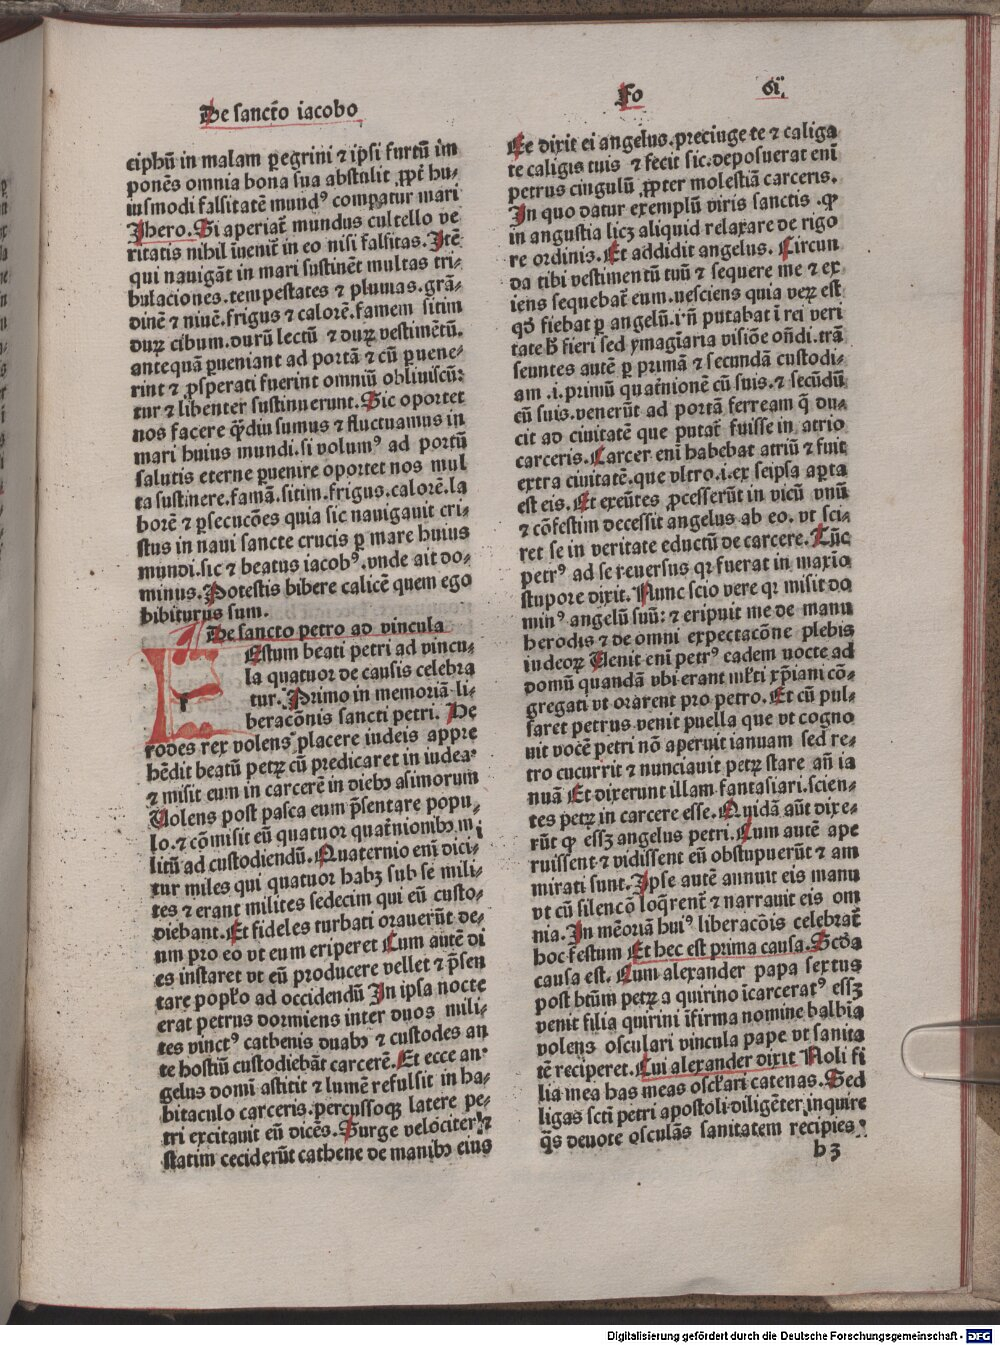 De sancto iacobo
Fo
ciphū in malam ꝑegrini ⁊ ipsi furtū im
ponēs omnia bona sua abstulit ꝓpt̄ hu⸗
iusmodi falsitatē mundꝰ compatur mari
Jhero. Si aperiat̄ mundus cultello ve
ritatis nihil īuenit̄ in eo nisi falsitas. Jtē
qui nauigāt in mari sustinēt multas tri⸗
bulaciones. tempestates ⁊ pluuias. grā⸗
dinē ⁊ niuē. frigus ⁊ calorē. famem sitim
duꝝ cibum. durū lectū ⁊ duꝝ vestimētū.
antequā ꝑueniant ad portā ⁊ cū ꝑuene⸗
rint ⁊ ꝓsperati fuerint omniū obliuiscū⸗
tur ⁊ libenter sustinuerunt. Sic oportet
nos facere q̄diu sumus ⁊ fluctuamus in
mari huius mundi. si volumꝰ ad portū
salutis eterne ꝑuenire oportet nos mul
ta sustinere. famā. sitim. frigus. calorē. la
borē ⁊ ꝑsecucōes quia sic nauigauit cri⸗
stus in naui sancte crucis ꝑ mare huius
mundi. sic ⁊ beatus iacobꝰ. vnde ait do⸗
minus. Potestis bibere calicē quem ego
bibiturus sum.
De sancto petro ad vincula
FEstum beati petri ad vincu⸗
la quatuor de causis celebra
tur. Primo in memoriā li⸗
beracōnis sancti petri. He
rodes rex volens placere iudeis appre
hēdit beatū petꝝ cū predicaret in iudea
⁊ misit eum in carcerē in diebꝫ asimorum
Uolens post pasca eum p̄sentare popu⸗
lo. ⁊ cōmisit eū quatuor quat̄nionibꝫ mi
litū ad custodiendū. Quaternio enī dici⸗
tur miles qui quatuor habꝫ sub se mili⸗
tes ⁊ erant milites sedecim qui eū custo⸗
diebant. Et fideles turbati orauerūt de⸗
um pro eo vt eum eriperet Cum autē di
es instaret vt eū producere vellet ⁊ p̄sen
tare popl̄o ad occidendū Jn ipsa nocte
erat petrus dormiens inter duos mili⸗
tes vinctꝰ cathenis duabꝫ ⁊ custodes an
te hostiū custodiebāt carcerē. Et ecce an⸗
gelus domī astitit ⁊ lumē refulsit in ha⸗
bitaculo carceris. percussoqꝫ latere pe⸗
tri excitauit eū dicēs. Surge velociter ⁊
statim ceciderūt cathene de manibꝫ eius
Et dixit ei angelus. precinge te ⁊ caliga
te caligis tuis ⁊ fecit sic. deposuerat enī
petrus cingulū ꝓpter molestiā carceris.
Jn quo datur exemplū viris sanctis. ꝙ
in angustia licꝫ aliquid relaxare de rigo
re ordinis. Et addidit angelus. Circun
da tibi vestimentū tuū ⁊ sequere me ⁊ ex
iens sequebat̄ eum. nesciens quia veꝝ est
qd̄ fiebat ꝑ angelū. i. ñ putabat ī rei veri
tate h̄ fieri sed ymagīaria visiōe oñdi. trā
seuntes autē ꝑ primā ⁊ secundā custodi⸗
am .i. primū quat̄nionē cū suis. ⁊ secūdū
cū suis. venerūt ad portā ferream q̄ du⸗
cit ad ciuitatē que putat̄ fuisse in atrio
carceris. Carcer enī habebat atriū ⁊ fuit
extra ciuitatē. que vltro .i. ex seipsa aꝑta
est eis. Et exeūtes ꝓcesserūt in vicū vnū
⁊ cōfestim decessit angelus ab eo. vt sci⸗
ret se in veritate eductū de carcere. Tūc
petrꝰ ad se reuersus qꝛ fuerat in maxīo
stupore dixit. Nunc scio vere qꝛ misit do
minꝰ angelū suū: ⁊ eripuit me de manu
herodis ⁊ de omni expectacōne plebis
iudeoꝝ Uenit enī petrꝰ eadem nocte ad
domū quandā vbi erant ml̄ti xp̄iani cō⸗
gregati vt orarent pro petro. Et cū pul⸗
saret petrus venit puella que vt cogno
uit vocē petri nō aperuit ianuam sed re⸗
tro cucurrit ⁊ nunciauit petꝝ stare añ ia
nuā Et dixerunt illam fantasiari. scien⸗
tes petꝝ in carcere esse. Quidā aūt dixe⸗
rūt ꝙ essꝫ angelus petri. Cum autē ape
ruissent ⁊ vidissent eū obstupuerūt ⁊ am
mirati sunt. Jpse autē annuit eis manu
vt cū silencō loq̄rent̄ ⁊ narrauit eis om
nia. Jn mēoriā huiꝰ liberacōis celebrat̄
hoc festum Et hec est prima causa. Scd̄a
causa est. Cum alexander papa sextus
post btūm petꝝ a quirino īcarceratꝰ essꝫ
venit filia quirini īfirma nomine balbīa
volens osculari vincula pape vt sanita
tē reciperet. Cui alexander dixit Noli fi
lia mea has meas oscl̄ari catenas. Sed
ligas sctī petri apostoli diligēter inquire
q̄s deuote osculās sanitatem recipies.
b 3
Digitalisierung gefördert durch die Deutsche Forschungsgemeinschaft - DFG